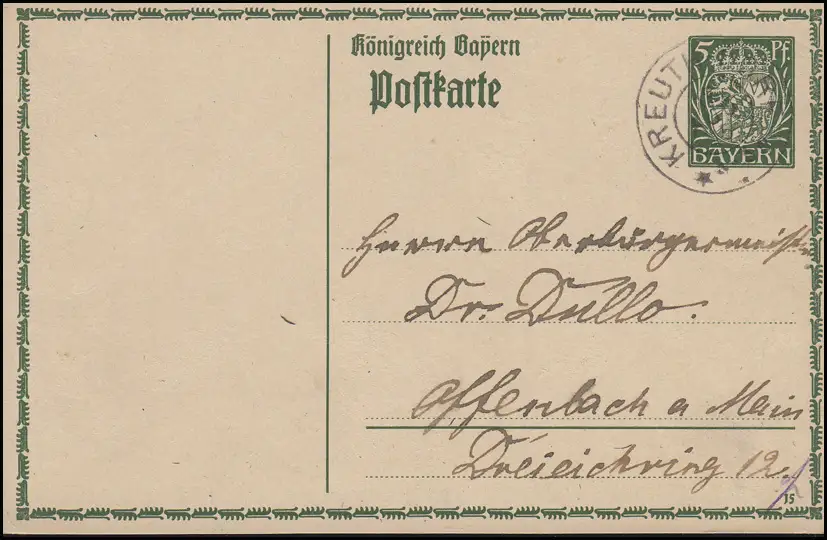 Königreich Bayern
Postkarte
5 Pf.
BAYERN
KREUTH
Herrn Oberbürgermeister
Dr. Dullo.
Offenbach a Main
Dreieichring 12.
15